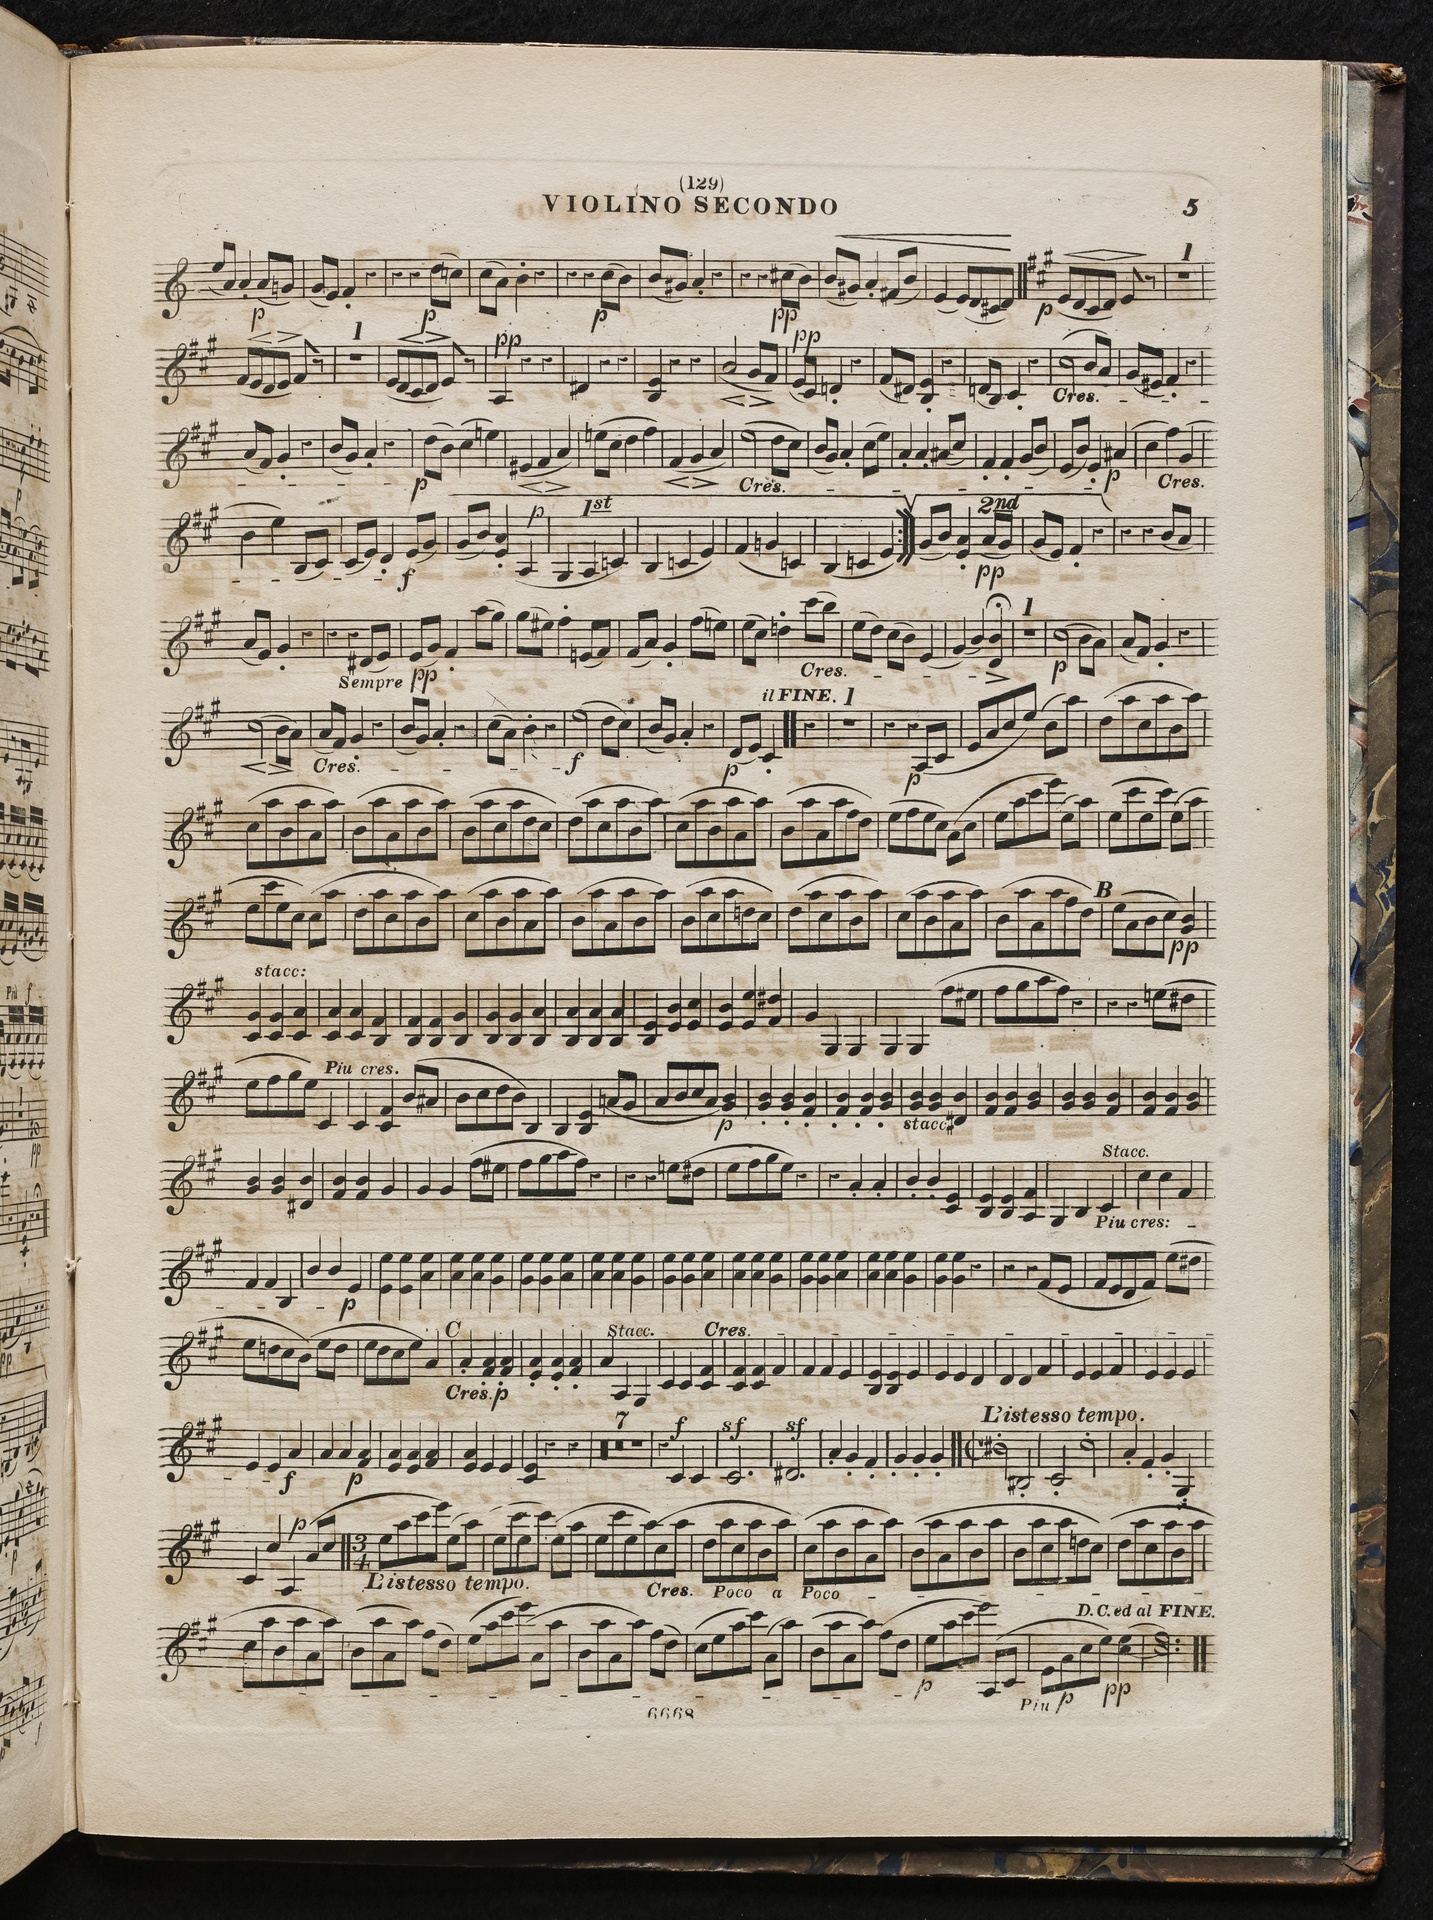 (129)
VIOLINO SECONDO 5
1
p p p pp p
1
pp pp
Cres.
p Cres. p Cres.
p 1st 2nd
f pp
1
Sempre pp Cres. p
il FINE. 1
Cres. f p p
B
pp
stacc:
Piu cres.
p stacc
Stacc.
Piu cres:
p
C Stacc. Cres.
Cres. p
7 f sf sf L'istesso tempo.
f p
p
3
4
L'istesso tempo. Cres. Poco a Poco
D.C. ed al FINE.
p Piu p pp
6668